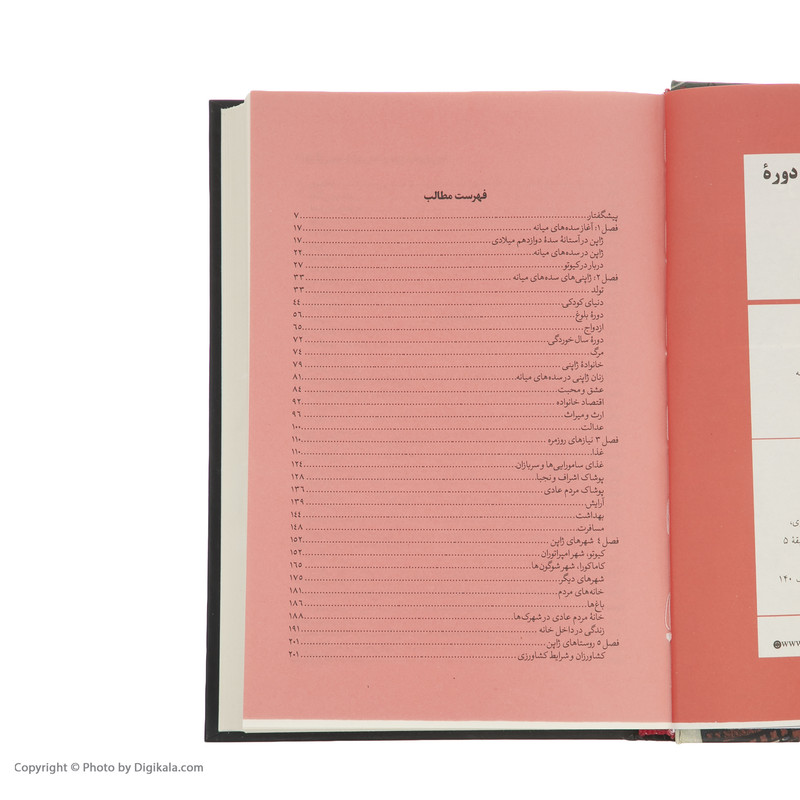 فهرست مطالب
پیشگفتار ۷
فصل ۱: آغاز سده‌های میانه ۱۷
ژاپن در آستانهٔ سدهٔ دوازدهم میلادی ۱۷
ژاپن در سده‌های میانه ۲۲
دربار در کیوتو ۲۷
فصل ۲: ژاپنی‌های سده‌های میانه ۳۳
تولد ۳۳
دنیای کودکی ۴۴
دورهٔ بلوغ ۵۶
ازدواج ۶۵
دورهٔ سال خوردگی ۷۲
مرگ ۷۴
خانوادهٔ ژاپنی ۷۹
زنان ژاپنی در سده‌های میانه ۸۱
عشق و محبت ۸۴
اقتصاد خانواده ۹۲
ارث و میراث ۹۶
عدالت ۱۰۰
فصل ۳ نیازهای روزمره ۱۱۰
غذا ۱۱۰
غذای سامورایی‌ها و سربازان ۱۲۴
پوشاک اشراف و نجبا ۱۲۸
پوشاک مردم عادی ۱۳۶
آرایش ۱۳۹
بهداشت ۱۴۴
مسافرت ۱۴۸
فصل ۴ شهرهای ژاپن ۱۵۲
کیوتو، شهر امپراتوران ۱۵۲
کاماکورا، شهر شوگون‌ها ۱۶۵
شهرهای دیگر ۱۷۵
خانه‌های مردم ۱۸۱
باغ‌ها ۱۸۶
خانهٔ مردم عادی در شهرک‌ها ۱۸۸
زندگی در داخل خانه ۱۹۱
فصل ۵ روستاهای ژاپن ۲۰۱
کشاورزان و شرایط کشاورزی ۲۰۱
دورهٔ
۵
۱۴۰
www.
Copyright © Photo by Digikala.com